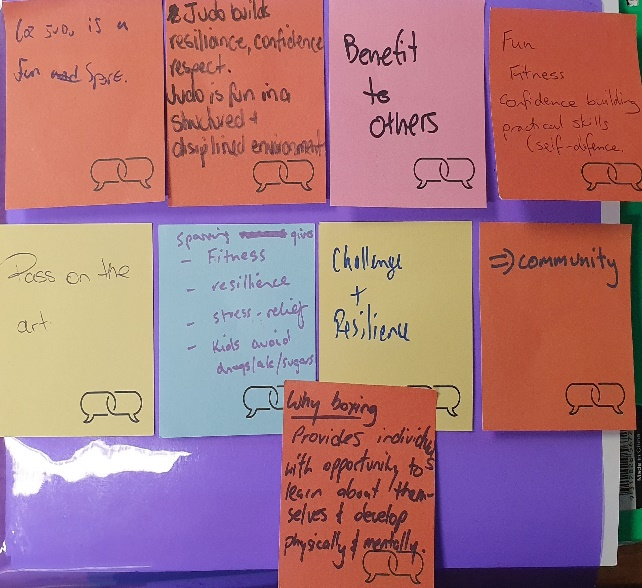 Coz Judo is a
fun Sport.
Judo builds
resiliance, confidence
respect.
Judo is fun in a
structured +
disiplined environment
Benefit
to
others
Fun
Fitness
Confidence building
practical skills
(self-difence.
Pass on the
art.
Sparring gives
- Fitness
- resillience
- stress-relief
- Kids avoid
drugs/alc/sugars
Challenge
+
Resilience
=> community
Why boxing
Provides individuals
with opportunity to
learn about them-
selves & develop
physically & mentally.